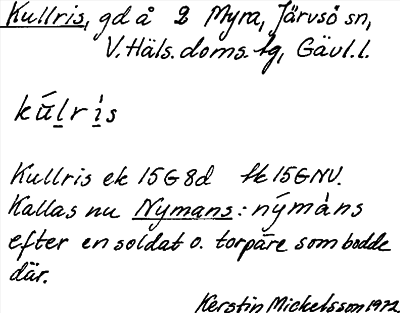 Kullris, gd å 2 Myra, Järvsö sn,
V. Häls. doms. tg, Gävl. l.
kúl̲r ì̲s
Kullris ek 15G8d fk 15GNV.
Kallas nu Nymans: nýmàns
efter en soldat o. torpare som bodde
där.
Kerstin Mickelsson 1972